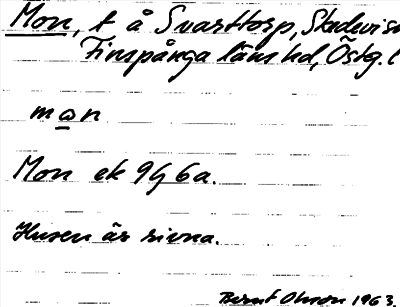 Mon, t å Svarttorp, Skedevi s
Finspånga läns hd, Östg. l
mo̲n
Mon ek 9G 6a.
Husen är rivna.
Bernt Olsson 1963.